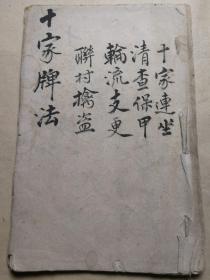 十家連坐
清查保甲
輪流支更
聯村擒盗
十家牌法